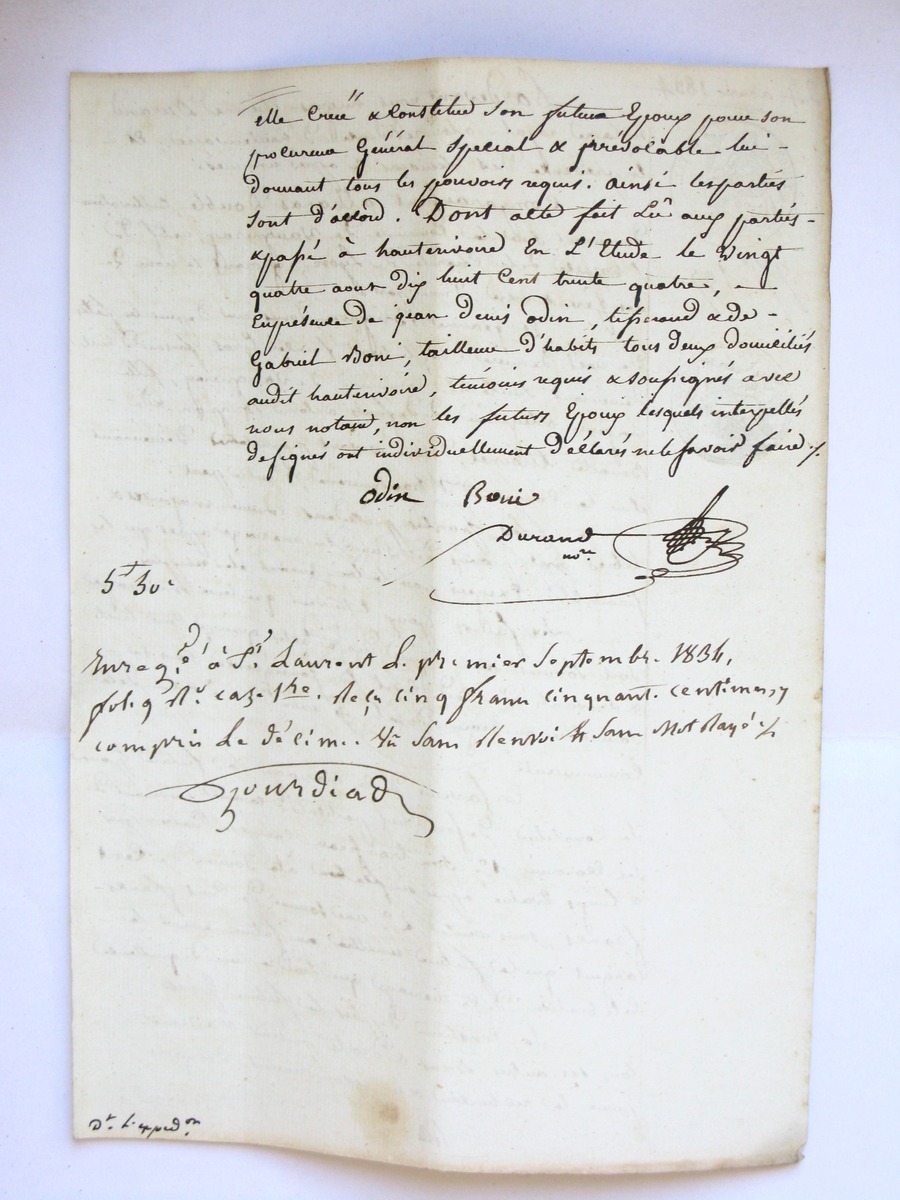 elle Creé & Constitue Son futur Epoux pour son
procureur Général Special & jrrevocable lui -
donnant tous les pouvoirs requis. ainsi lesparties
Sont d'accord. Dont acte fait Lû aux parties -
& passé à hauterivoire En L'Etude le vingt
quatre aout dix huit Cent trente quatre, -
Enprésence de jean Denis Odin, tisserand & de -
Gabriel Boni, tailleur d'habits tous deux domiciliés
audit hauterivoire, témoins requis & soussignés avec
nous notaire, non les futurs Epoux lesquels interpellés
designés ont individuellement déclarés nele savoir faire ./.
Odin Boni
Durand
nore
5f 50c
Enregé à St Laurent Le premier Septembre 1834,
fol. 9 Ro. caze 1re. Reçu cinq francs cinquante centimes, y
compris Le décime. Sans Renvoi & Sans Mot Rayé ./.
Gourdiad
Dt. L'expedon